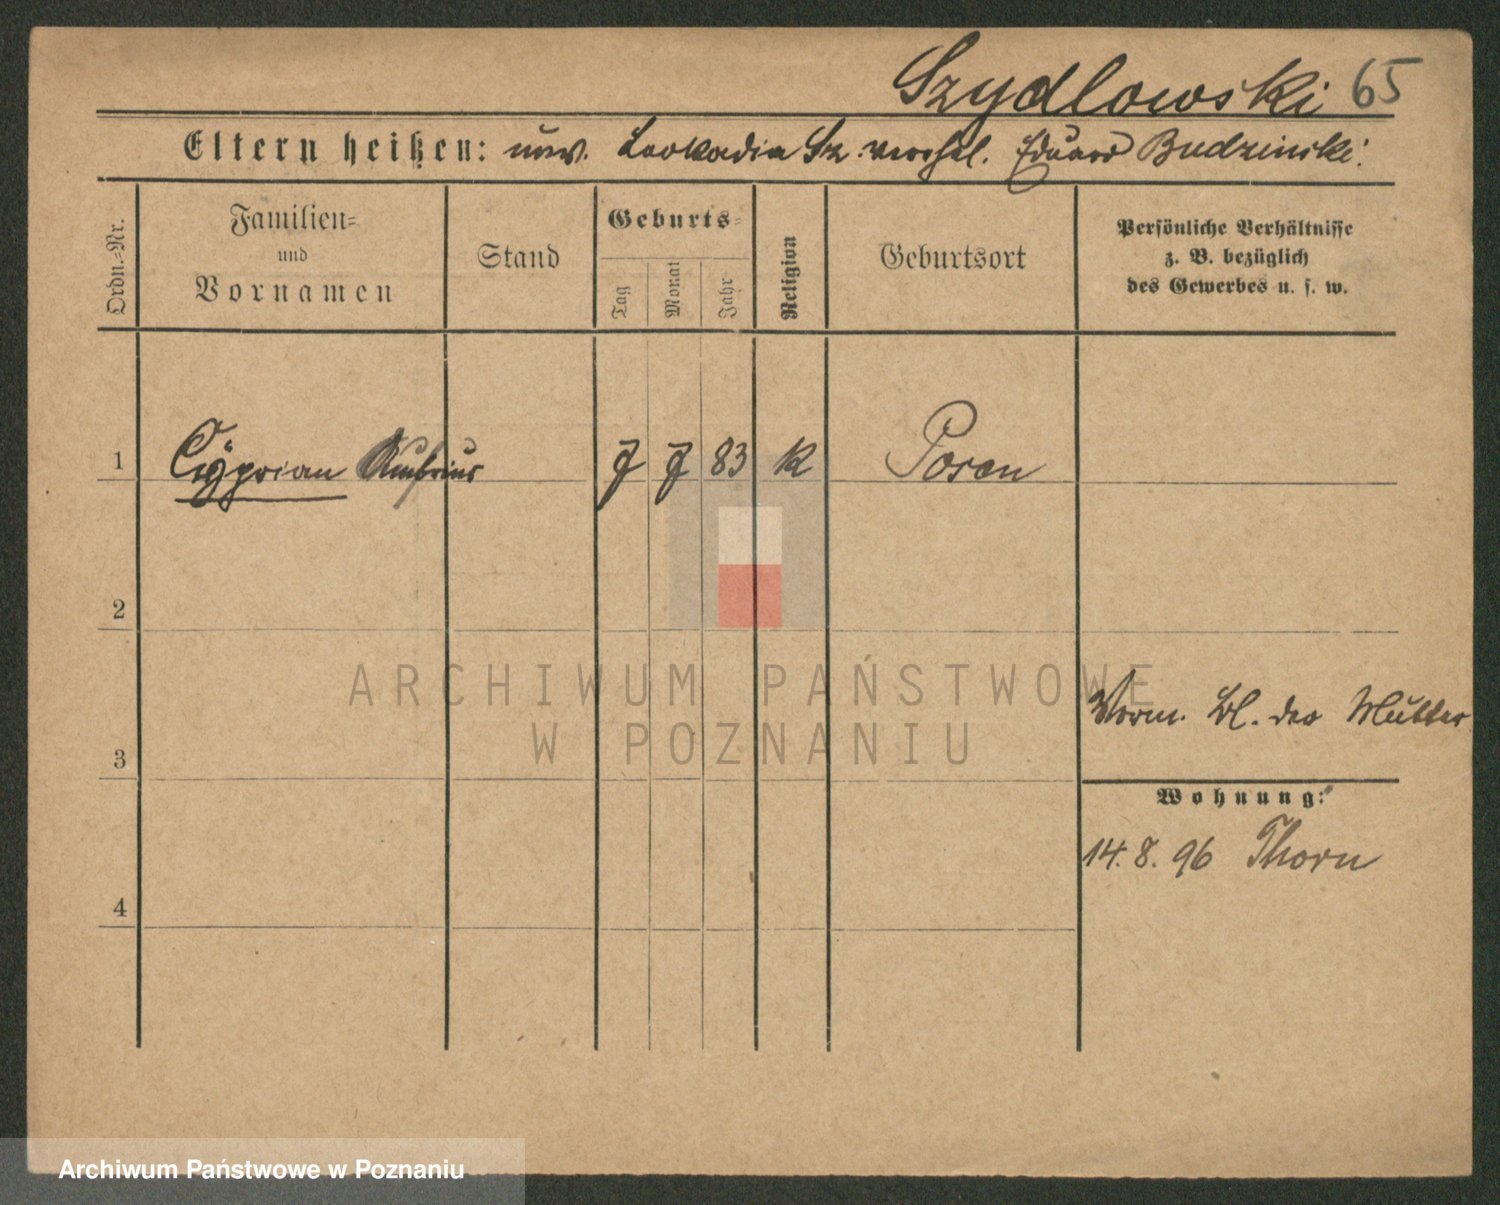 Szydlowski 65
Eltern heißen: unv. Leokadia Sz. verehel. Eduard Budzinski.
Ordn.-Nr.
Familien-
und
Vornamen
Stand
Geburts-
Tag
Monat
Jahr
Religion
Geburtsort
Persönliche Verhältnisse
z. B. bezüglich
des Gewerbes u. s. w.
1 Cÿprian 7 7 83 k Posen
2
ARCHIWUM PAŃSTWOWE
W POZNANIU
Vorm. Bl. der Mutter
3
Wohnung:
14. 8. 96 Thorn
4
Archiwum Państwowe w Poznaniu